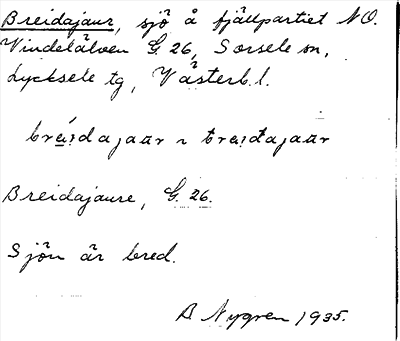 Breidajaur, sjö å fjällpartiet NO.
Vindelälven G. 26, Sorsele sn,
Lycksele tg, Västerb. l.
breidajaur ~ treidajaur
Breidajaure, G. 26.
Sjön är bred.
B Nygren 1935.